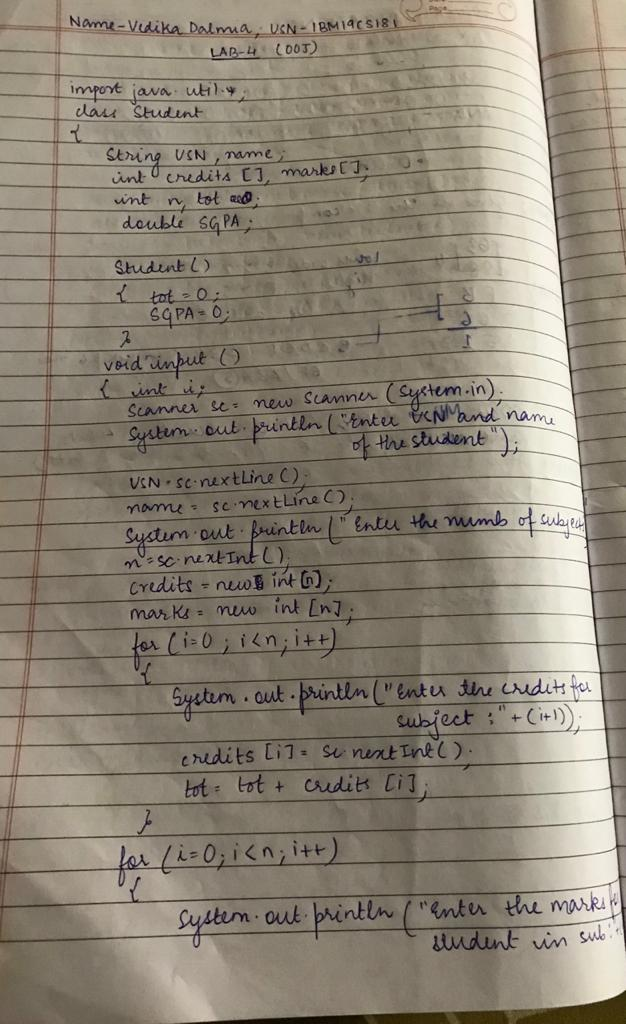 Name-Vedika Dalmia, USN-1BM19CS181
LAB-4 (OOJ)
import java.util.*;
class Student
{
String USN, name;
int credits [], marks[];
int n, tot
double SGPA;
Student()
{ tot=0;
SGPA=0;
}
void input ()
{ int i;
Scanner sc= new Scanner (System.in);
System.out.println ("Enter USN and name
of the student");
USN=sc.nextLine();
name = sc.nextLine();
System.out.println (" Enter the numb of subject
n=sc.nextInt();
credits = new int [n];
marks = new int [n];
for (i=0 ; i<n; i++)
{
System.out.println("Enter the credits for
subject :"+(i+1));
credits [i]= sc.nextInt();
tot= tot + credits [i];
}
for (i=0; i<n; i++)
{
System.out.println ("Enter the marks
student in sub